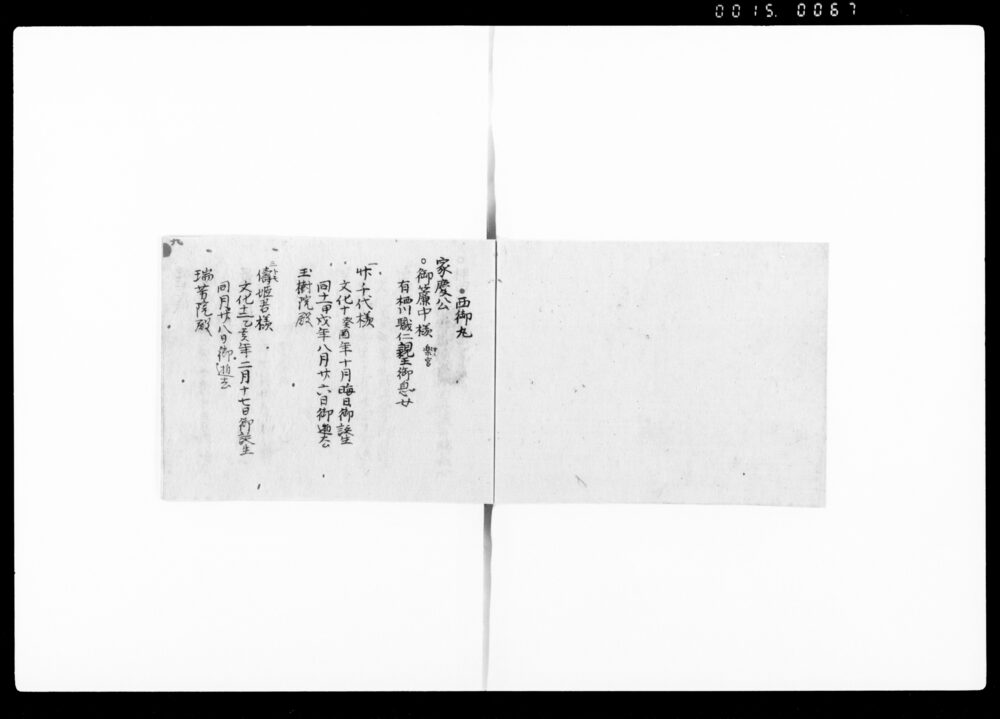 0015. 0067
西御丸
家慶公
御簾中様 楽宮
有栖川職仁親王御息女
一 竹千代様
文化十癸酉年十月晦日御誕生
同十一甲戌年八月廿六日御逝去
玉樹院殿
儔姫君様
文化十二乙亥年二月十七日御誕生
同月廿八日御逝去
瑞芳院殿
九